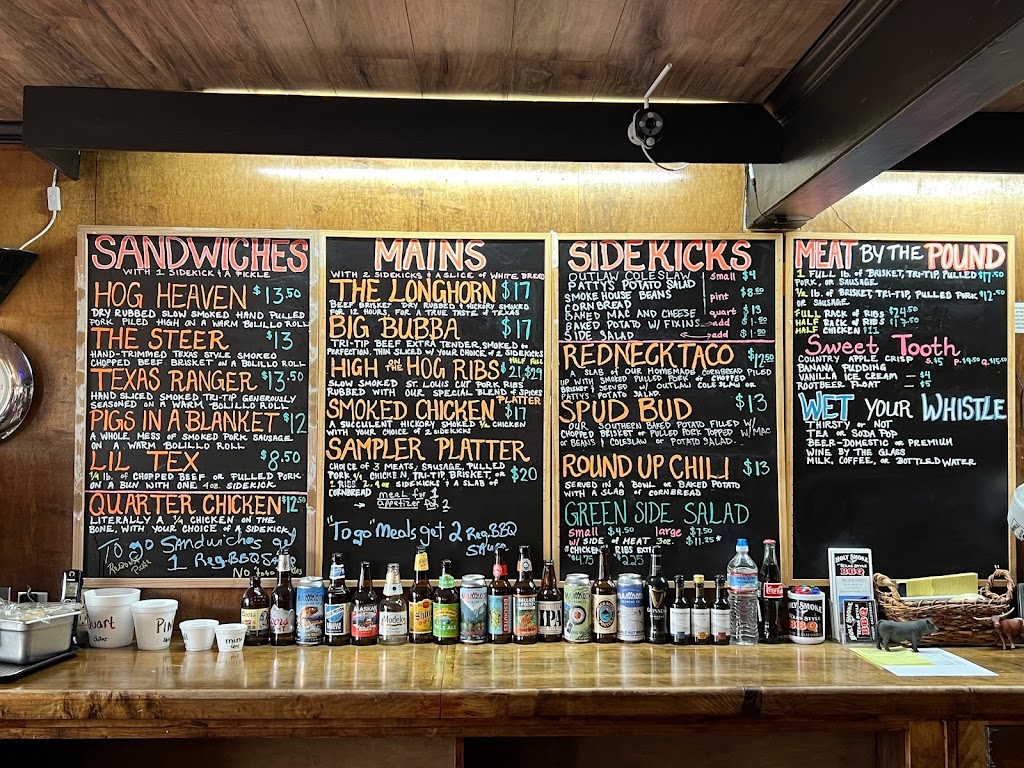 SANDWICHES
WITH 1 SIDEKICK & A PICKLE
HOG HEAVEN $13.50
DRY RUBBED SLOW SMOKED HAND PULLED
PORK PILED HIGH ON A WARM BOLILLO ROLL
THE STEER $13
HAND-TRIMMED TEXAS STYLE SMOKED
CHOPPED BEEF BRISKET ON A WARM BOLILLO ROLL
TEXAS RANGER $13.50
HAND SLICED SMOKED TRI-TIP GENEROUSLY
SEASONED ON A WARM BOLILLO ROLL
PIGS IN A BLANKET $12
A WHOLE MESS OF SMOKED PORK SAUSAGE
ON A WARM BOLILLO ROLL
LIL TEX $8.50
1/4 lb. OF CHOPPED BEEF OR PULLED PORK
ON A BUN WITH ONE 4oz. SIDEKICK
QUARTER CHICKEN $12.50
LITERALLY A 1/4 CHICKEN ON THE
BONE, WITH YOUR CHOICE OF A SIDEKICK
To go Sandwiches get
1 Reg. BBQ
MAINS
WITH 2 SIDEKICKS & A SLICE OF WHITE BREAD
THE LONGHORN $17
BEEF BRISKET DRY RUBBED & HICKORY SMOKED
FOR 12 HOURS, FOR A TRUE TASTE OF TEXAS
BIG BUBBA $17
TRI-TIP BEEF EXTRA TENDER, SMOKED TO
PERFECTION, THIN SLICED W/YOUR CHOICE OF 2 SIDEKICKS
HALF FULL
HIGH on the HOG RIBS $21, $29
SLOW SMOKED ST. LOUIS CUT PORK RIBS
RUBBED WITH OUR SPECIAL BLEND of SPICES
PLATTER
SMOKED CHICKEN $17
A SUCCULENT HICKORY SMOKED 1/2 CHICKEN
WITH YOUR CHOICE OF 2 SIDEKICKS
SAMPLER PLATTER
CHOICE OF 3 MEATS, SAUSAGE, PULLED
PORK 1/4 CHICKEN, TRI-TIP, BRISKET, OR $20
2 RIBS 2. 4oz SIDEKICKS & A SLAB OF
CORNBREAD meal for 1
appetizer for 2
"To go" Meals get 2 Reg. BBQ
SAUCE
SIDEKICKS
OUTLAW COLESLAW small $4
PATTY'S POTATO SALAD
SMOKE HOUSE BEANS pint $8.50
CORNBREAD
BAKED MAC AND CHEESE quart $13
BAKED POTATO W/ FIXINS add $1.50
SIDE SALAD add $1.50
REDNECK TACO $12.50
A SLAB OF OUR HOMEMADE CORNBREAD PILED
UP WITH SMOKED PULLED PORK OR CHOPPED
BRISKET; SERVED W/ OUTLAW COLESLAW OR
PATTY'S POTATO SALAD.
SPUD BUD $13
OUR SOUTHERN BAKED POTATO FILLED W/
CHOPPED BRISKET OR PULLED PORK TOPPED W/MAC
OR BEANS & COLESLAW OR POTATO SALAD.
ROUND UP CHILI $13
SERVED IN A BOWL OR BAKED POTATO
WITH A SLAB OF CORNBREAD
GREEN SIDE SALAD
small $4.50 large $7.50
W/ SIDE of MEAT 3oz. $11.25
CHICKEN RIBS EXTRA
$4.75 $2.25
MEAT BY THE POUND
1 FULL lb. OF BRISKET, TRI-TIP, PULLED $17.50
PORK, OR SAUSAGE
1/2 lb. OF BRISKET, TRI-TIP, PULLED PORK $12.50
OR SAUSAGE
FULL RACK OF RIBS $24.50
HALF RACK OF RIBS $17.50
HALF CHICKEN $11.
Sweet Tooth
COUNTRY APPLE CRISP
BANANA PUDDING
VANILLA ICE CREAM — $4
ROOTBEER FLOAT — $5
WET YOUR WHISTLE
THIRSTY OR NOT
TEA OR SODA POP
BEER-DOMESTIC OR PREMIUM
WINE BY THE GLASS
MILK, COFFEE, OR BOTTLED WATER
Quart
mini
Coors
ALASKAN
Modelo
IPA
GUINNESS
Coca-Cola
HOLY SMOKE
TEXAS STYLE
BBQ
HOLY SMOKE
TEXAS STYLE
BBQ